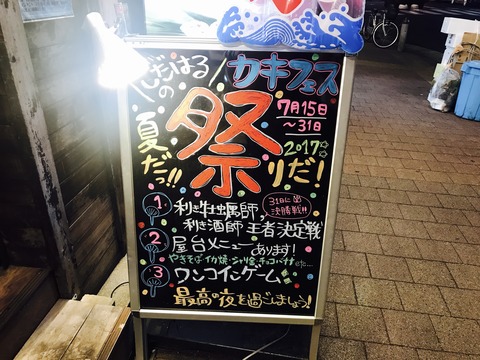 じもはるの
カキフェス
7月15日
～31日
2017
夏だっ!!
祭りだ!
1 利き牡蠣師,
利き酒師 王者決定戦
31日に
決勝戦!!
2 屋台メニューあります!
やきそば イカ焼 シャリ金 チョコバナナ etc…
3 ワンコインゲーム
最高の夜を過ごしましょう!